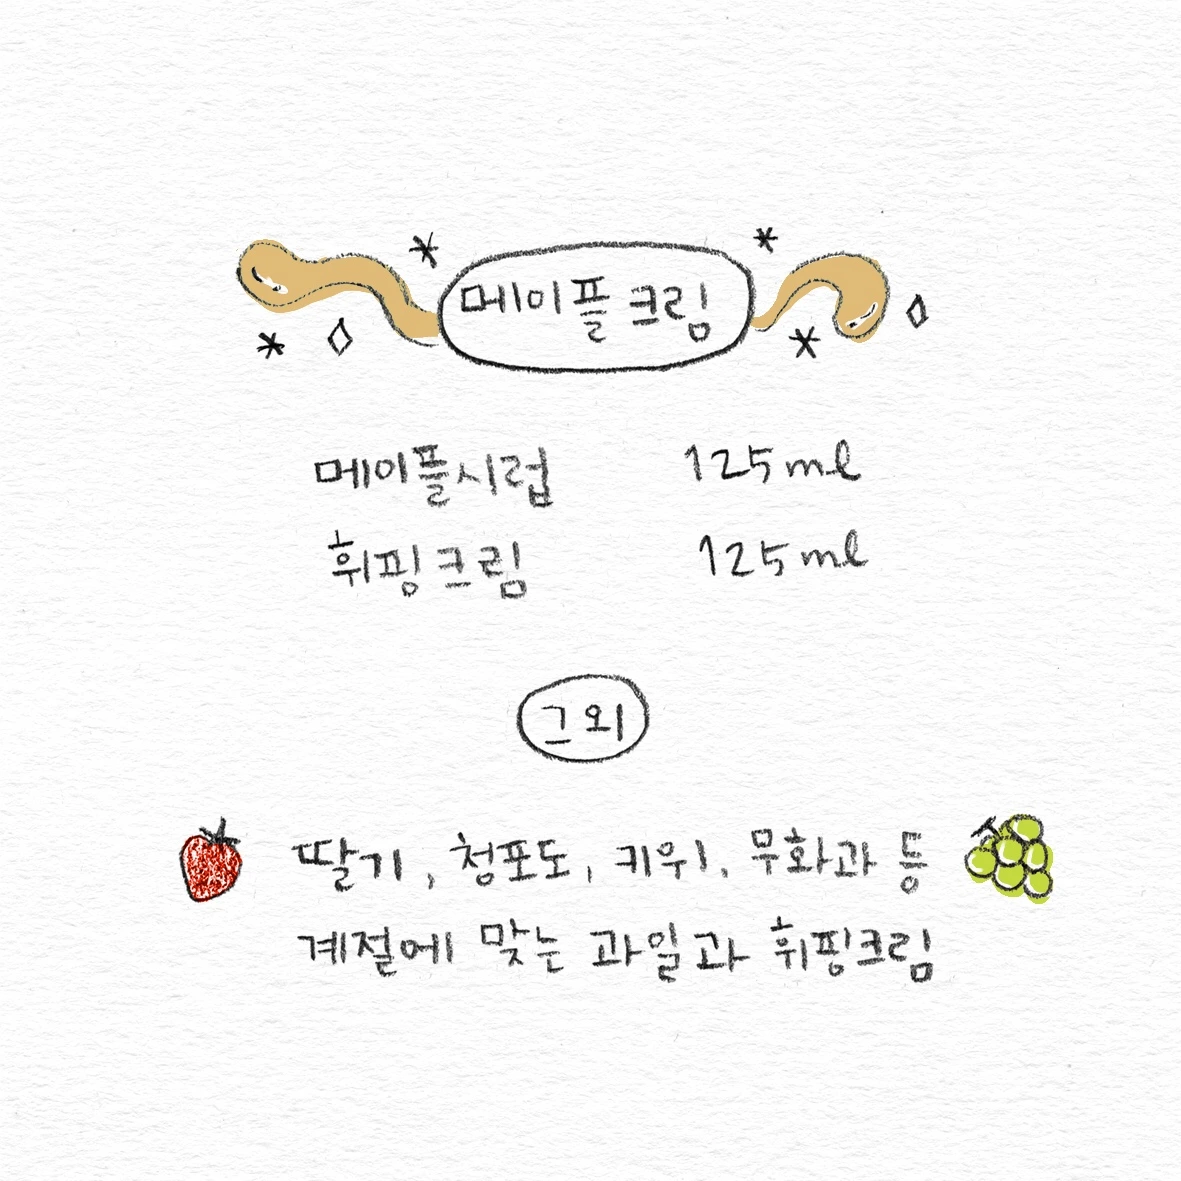 메이플 크림
메이플시럽 125ml
휘핑크림 125ml
그 외
딸기, 청포도, 키위, 무화과 등
계절에 맞는 과일과 휘핑크림